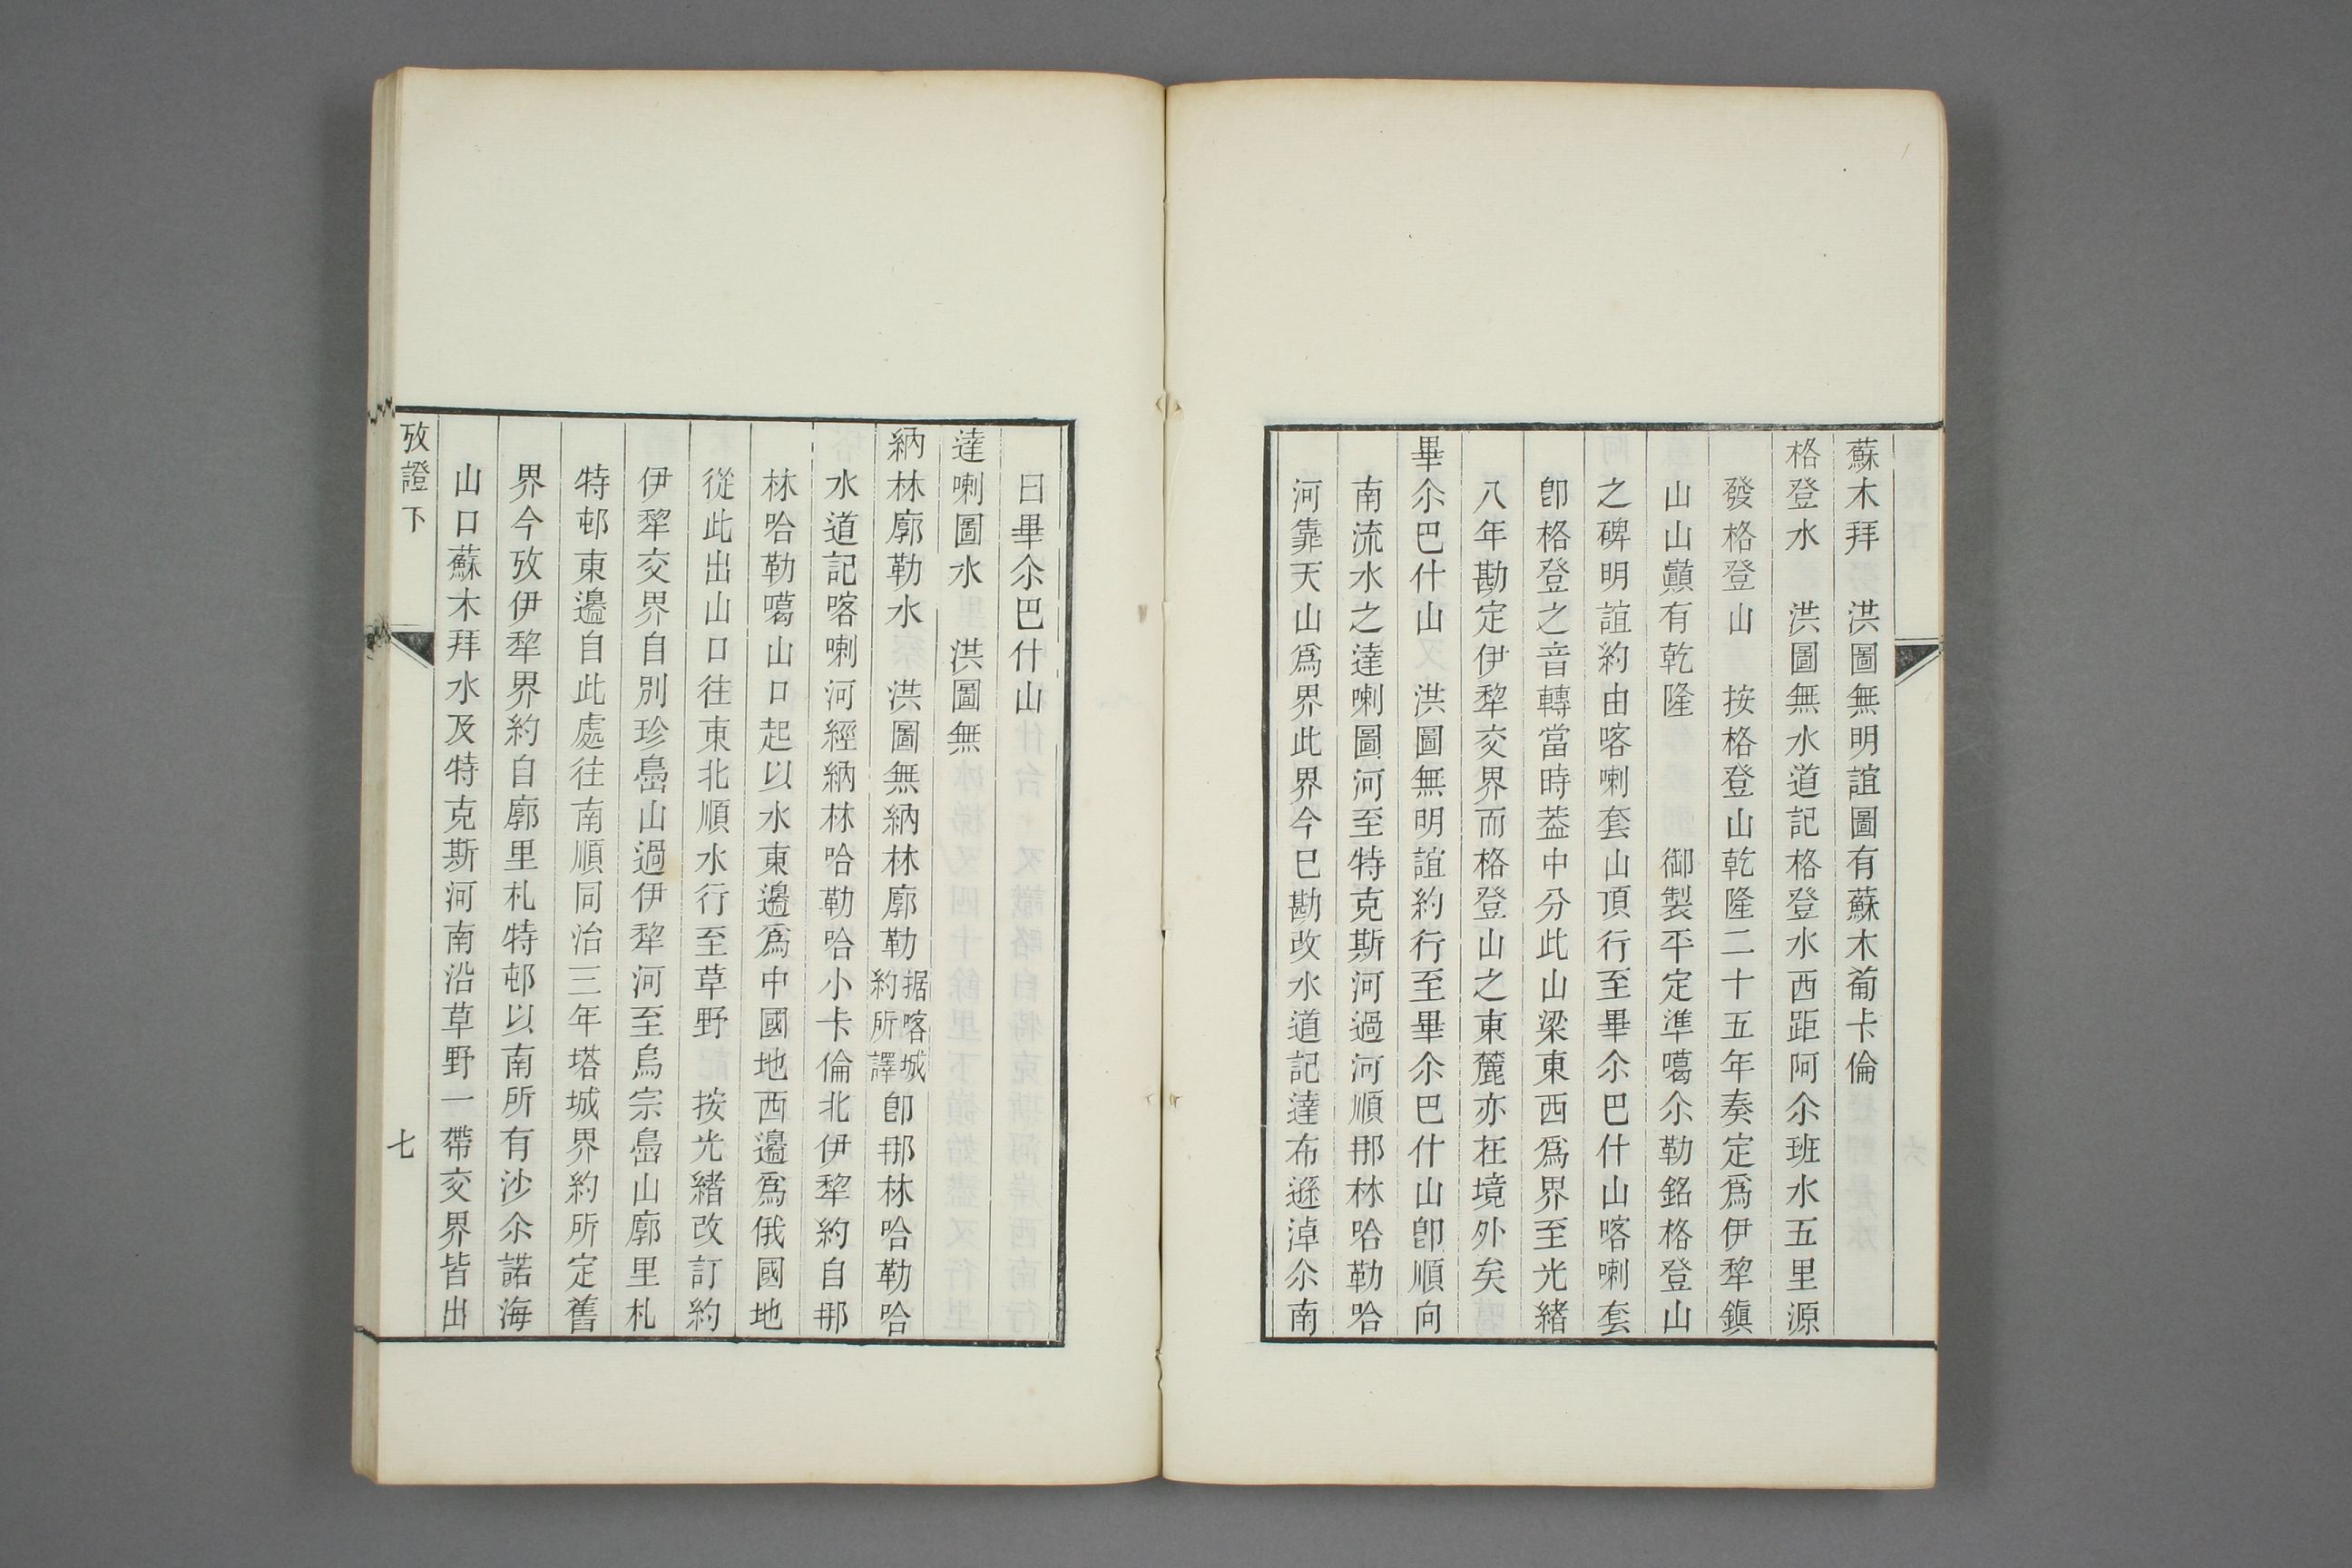 蘇木拜　洪圖無明誼圖有蘇木葡卡倫
格登水　洪圖無水道記格登水西距阿尒班水五里源
發格登山　按格登山乾隆二十五年奏定爲伊犂鎭
山山巔有乾隆　　　御製平定準噶尒勒銘格登山
之碑明誼約由喀喇套山頂行至畢尒巴什山喀喇套
卽格登之音轉當時葢中分此山梁東西爲界至光緖
八年勘定伊犂交界而格登山之東麓亦在境外矣
畢尒巴什山　洪圖無明誼約行至畢尒巴什山卽順向
南流水之達喇圖河至特克斯河過河順那林哈勒哈
河靠天山爲界此界今已勘改水道記達布遜淖尒南
曰畢尒巴什山
達喇圖水　洪圖無
納林廓勒水　洪圖無納林廓勒据喀城約所譯卽那林哈勒哈
水道記喀喇河經納林哈勒哈小卡倫北伊犂約自那
林哈勒噶山口起以水東邊爲中國地西邊爲俄國地
從此出山口往東北順水行至草野　按光緖改訂約
伊犂交界自別珍㠀山過伊犂河至烏宗㠀山廓里札
特邨東邊自此處往南順同治三年塔城界約所定舊
界今攷伊犂界約自廓里札特邨以南所有沙尒諾海
山口蘇木拜水及特克斯河南沿草野一帶交界皆出
攷證下
七